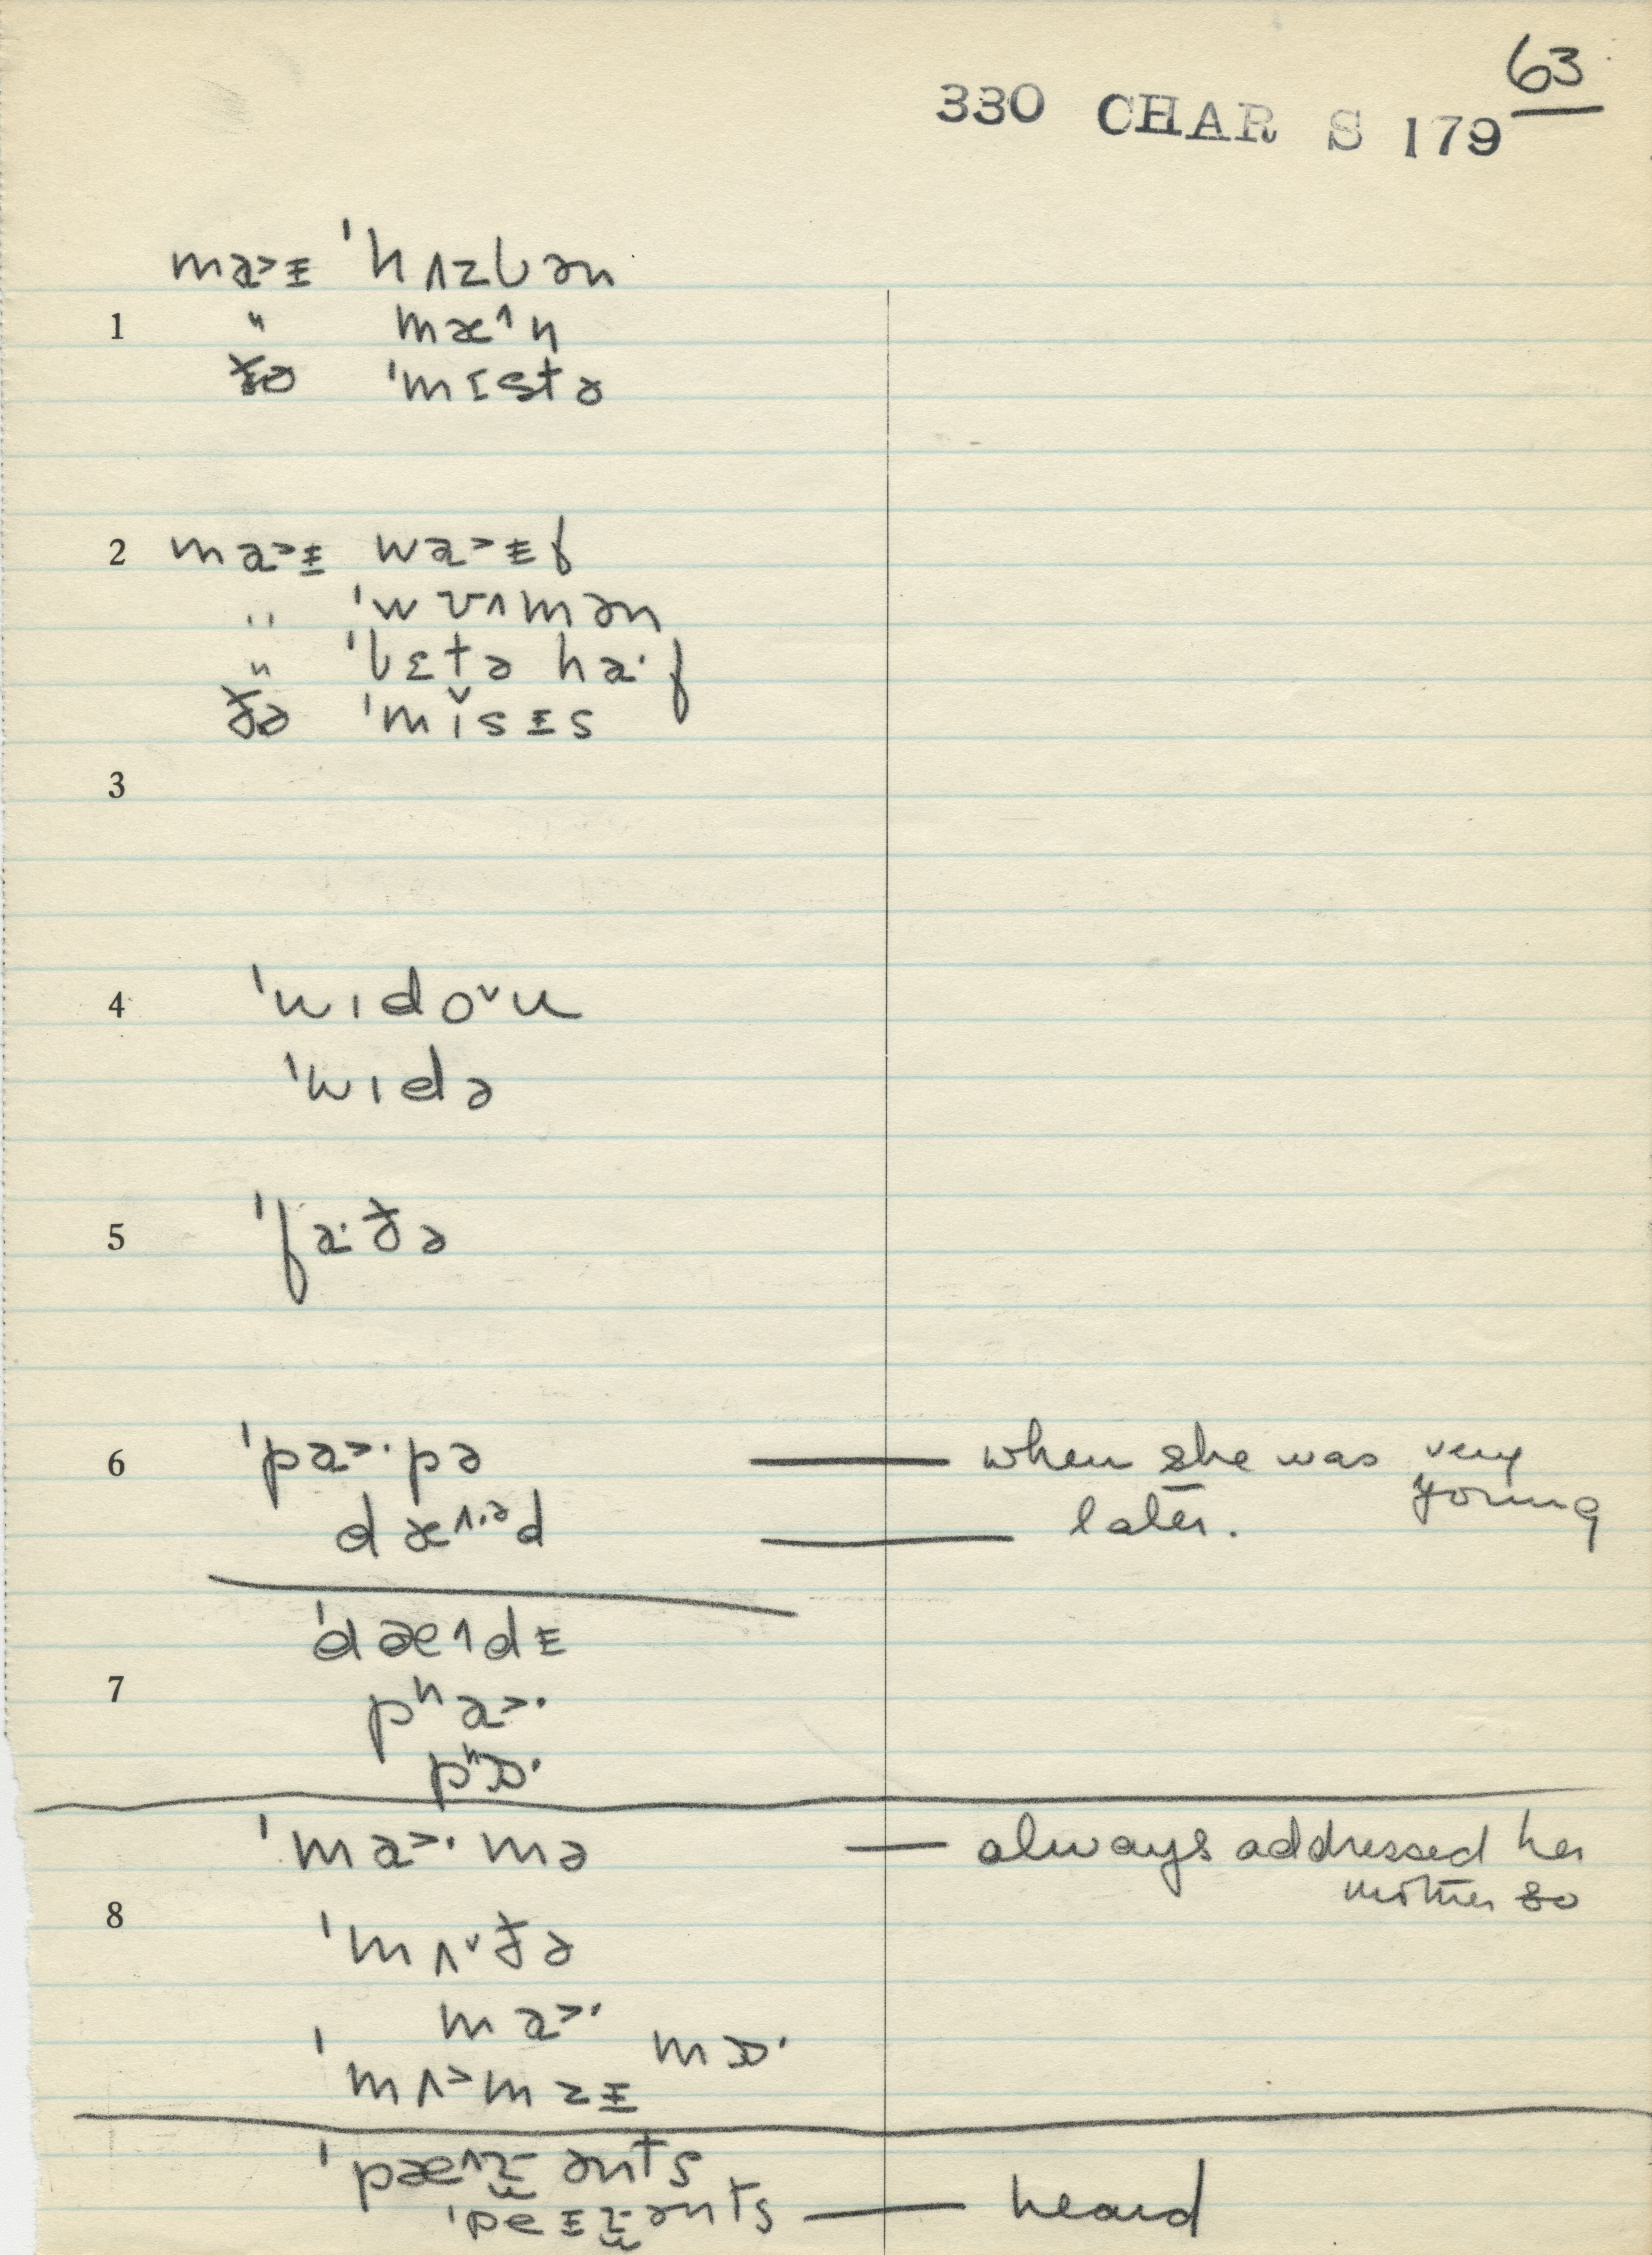 63
330 CHAR S 179
ma˃ɪ̵ ˈhʌzbən
1 " mæ˄n
ðə ˈmɪstə
2 ma˃ɪ̵ wa˃ɪ̵f
" ˈwʊ˄mən
" ˈbɛtə ha·f
ðə ˈmi˅sɪ̵s
3
4 ˈwɪdo˅u
ˈwɪdə
5 ˈfa·ðə
6 ˈpa˃·pə — when she was very young
dæ˄·ᵊd — later.
ˈdæ˄dɪ̵
7 pʰa˃·
pʰɒ·
ˈma˃·mə — always addressed her mother so
8 ˈmʌ˅ðə
ma˃·
mɒ·
ˈmʌ˃mzɪ̵
ˈpæ˄ənts
ˈpeɪ̵ənts — heard